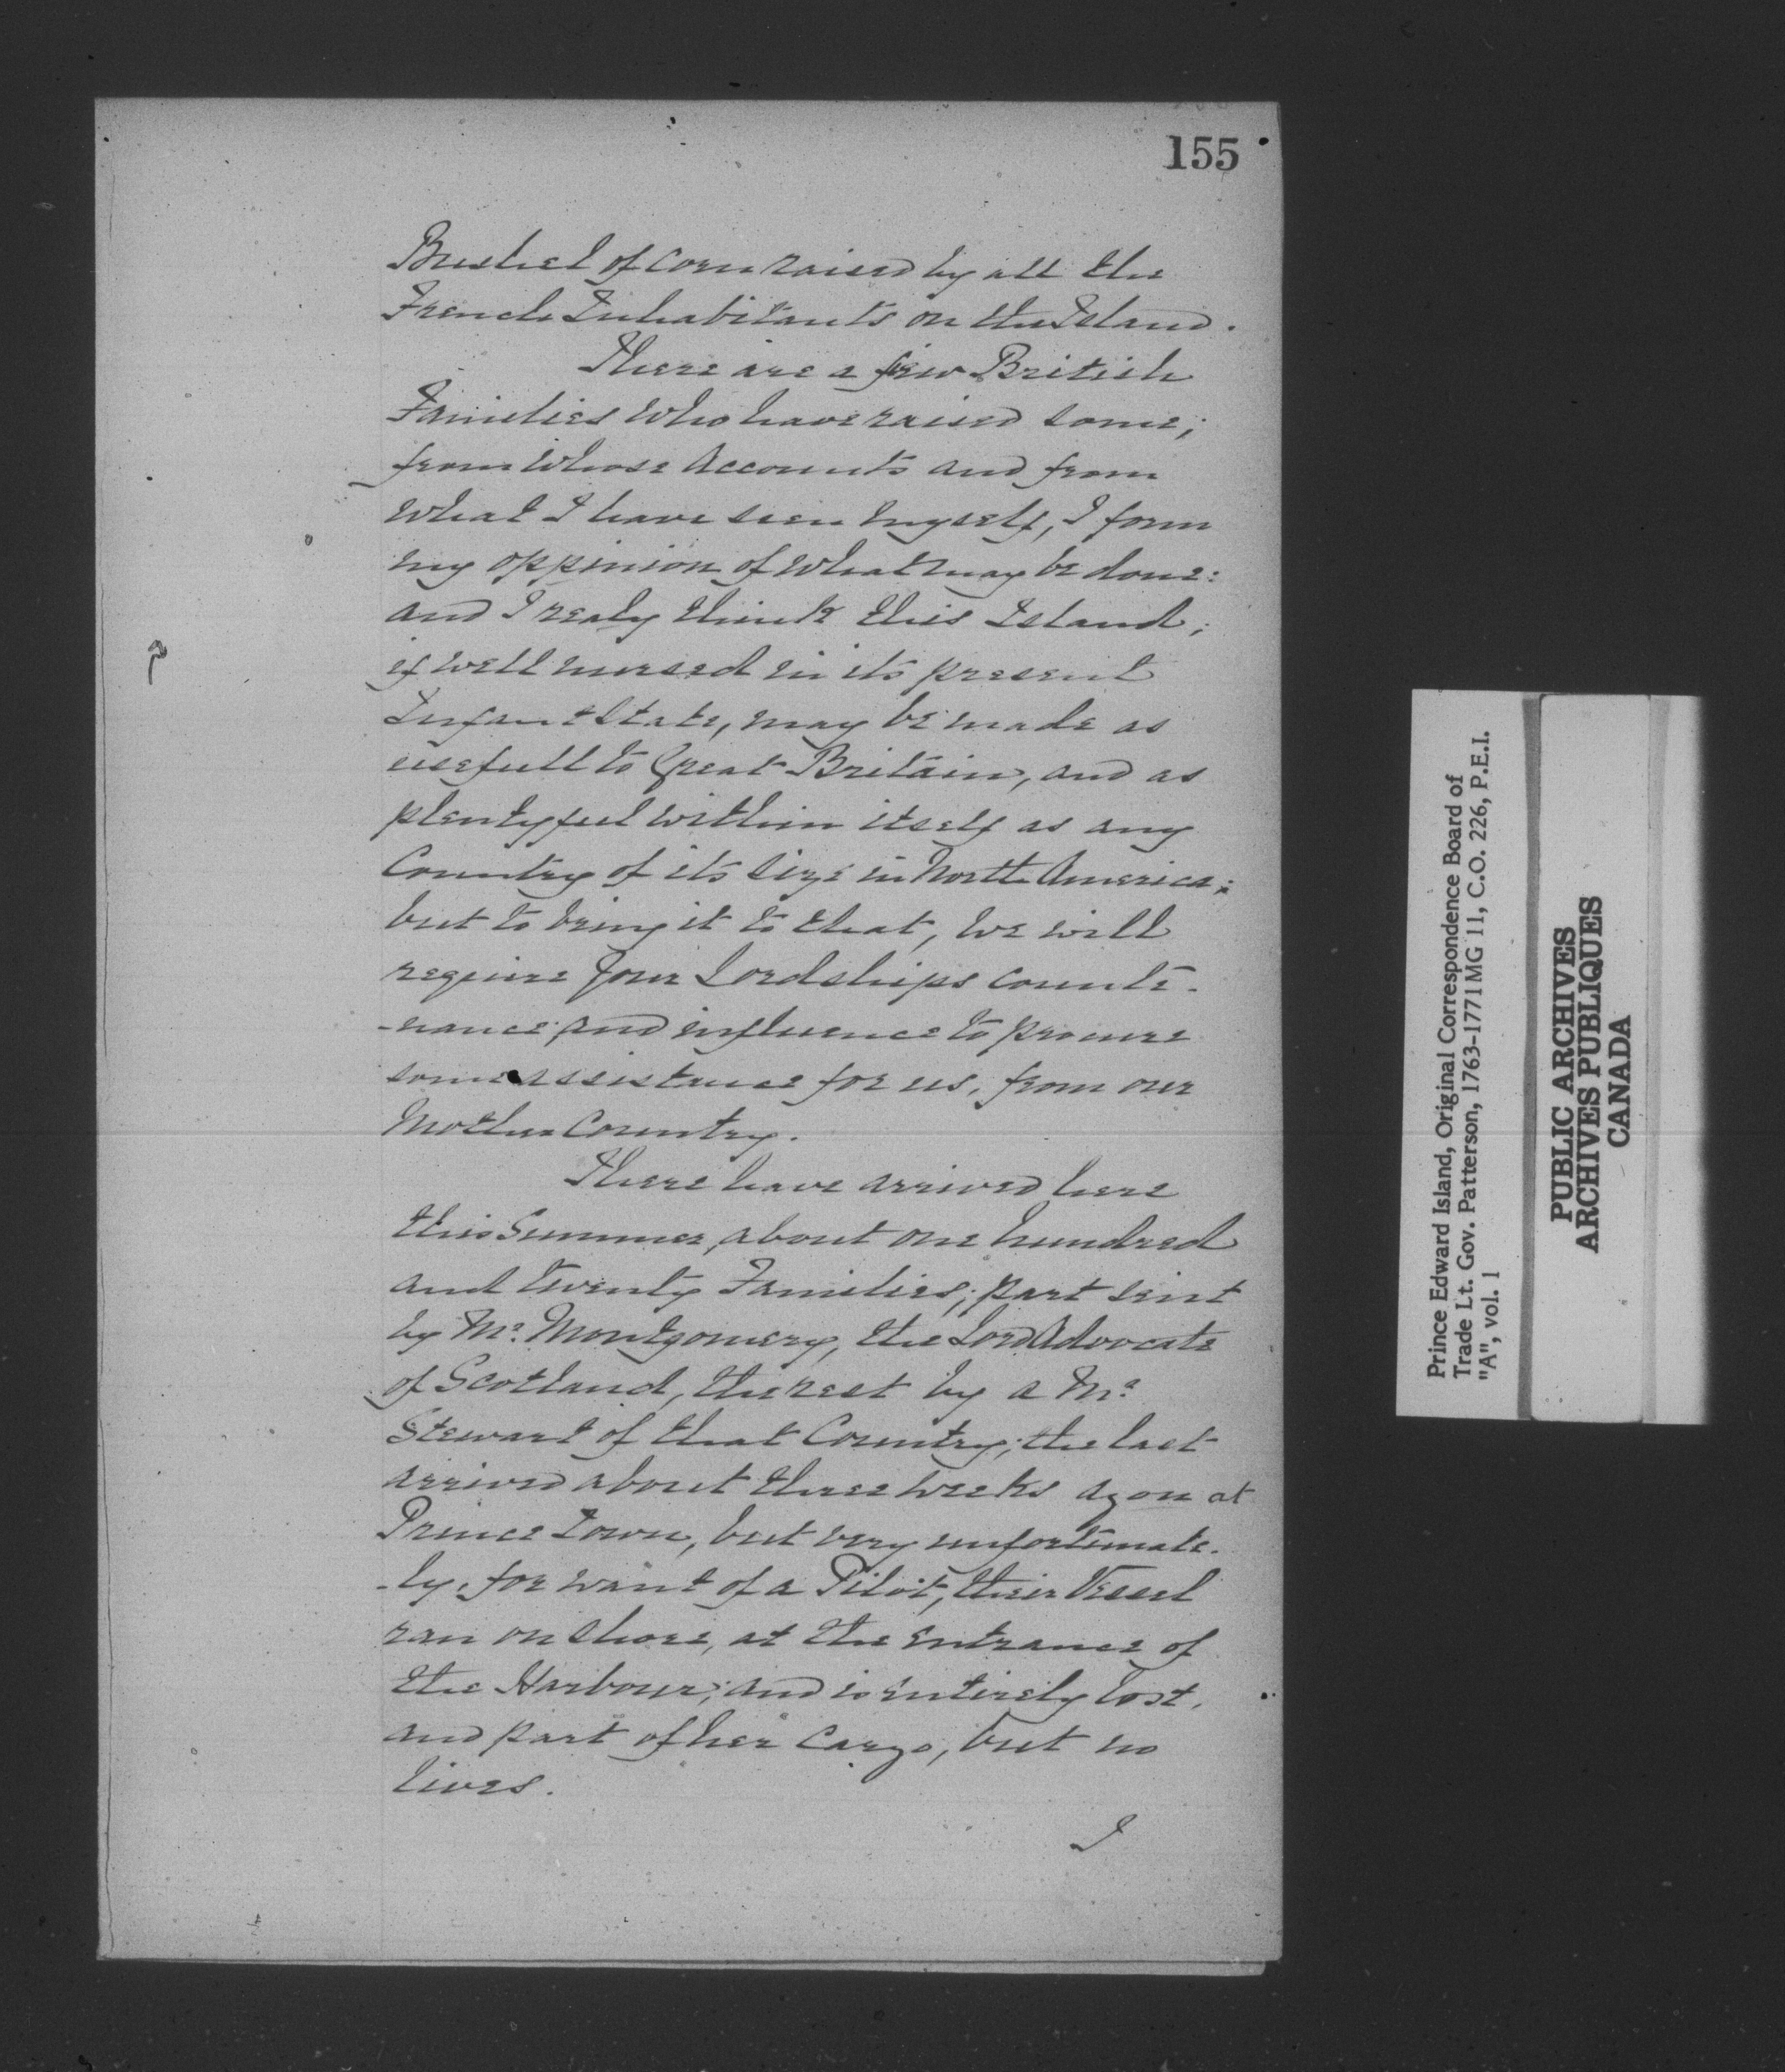 155
Bushel of Corn raised by all the
French Inhabitants on the Island.
There are a few British
Families who have raised some;
from whose Accounts and from
what I have seen myself, I form
my oppinion of what may be done:
and I realy think this Island,
if well nursed in its present
Infant State, may be made as
usefull to Great Britain, and as
plentyful within itself as any
Country of its size in North America;
but to bring it to that, we will
require Your Lordships counte-
-nance and influence to procure
some assistance for us, from our
Mother Country.
There have arrived here
this Summer, about one hundred
and twenty Families; part sent
by Mr. Montgomery, the Lord Advocate
of Scotland, the rest by a Mr.
Stewart of that Country; the last
arrived about three weeks agon at
Prince Town, but very unfortunate-
-ly, for want of a Pilot, their Vessel
ran on shore, at the entrance of
the Harbour; and is entirely lost,
and part of her Cargo, but no
lives.
I
Prince Edward Island, Original Correspondence Board of
Trade Lt. Gov. Patterson, 1763-1771 MG 11, C.O. 226, P.E.I.
"A", vol. 1
PUBLIC ARCHIVES
ARCHIVES PUBLIQUES
CANADA